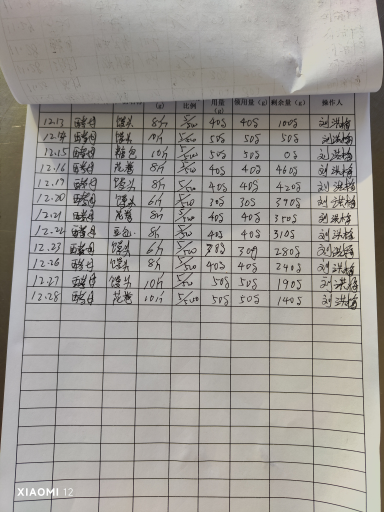 (g) 比例 用量(g) 使用量(g) 剩余量(g) 操作人
12.13 酵母 馒头 8斤 5/500 40g 40g 100g 刘洪梅
12.14 酵母 馒头 10斤 5/500 50g 50g 50g 刘洪梅
12.15 酵母 糖包 10斤 5/500 50g 50g 0g 刘洪梅
12.16 酵母 花卷 8斤 5/500 40g 40g 460g 刘洪梅
12.19 酵母 馒头 8斤 5/500 40g 40g 420g 刘洪梅
12.20 酵母 馒头 6斤 5/500 30g 30g 390g 刘洪梅
12.21 酵母 花卷 8斤 5/500 40g 40g 350g 刘洪梅
12.22 酵母 豆包 8斤 5/500 40g 40g 310g 刘洪梅
12.23 酵母 馒头 6斤 5/500 30g 30g 280g 刘洪梅
12.26 酵母 馒头 8斤 5/500 40g 40g 240g 刘洪梅
12.27 酵母 馒头 10斤 5/500 50g 50g 190g 刘洪梅
12.28 酵母 花卷 10斤 5/500 50g 50g 140g 刘洪梅
XIAOMI 12